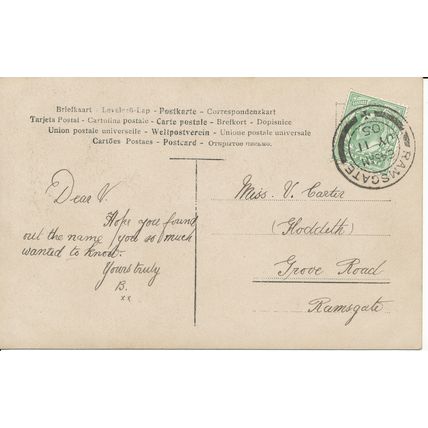 Briefkaart - Levelező-Lap - Postkarte - Correspondenzkart
Tarjeta Postal - Cartolina postale - Carte postale - Brefkort - Dopisnice
Union postale universelle - Weltpostverein - Unione postale universale
Cartões Postaes - Postcard - Открытое письмо.
RAMSGATE
11
05
Dear V.
Hope you found
out the name you so much
wanted to know.
Yours truly
B.
xx
Miss. V. Carter
Grove Road
Ramsgate.